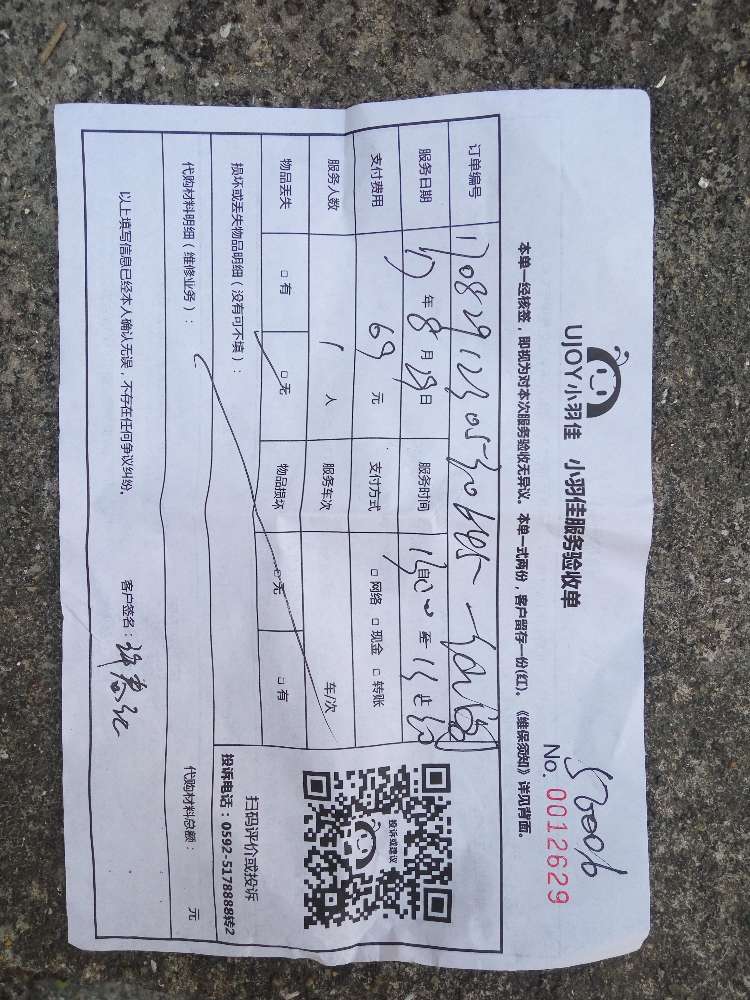 S20016
UJOY小羽佳 小羽佳服务验收单
No. 0012629
本单一经核签，即视为对本次服务验收无异议。本单一式两份，客户留存一份(红)。《维保须知》详见背面。
订单编号
服务日期 17年8月29日 服务时间 自 至 止
支付费用 69元 支付方式 □网络 □现金 □转账
服务人数 1人 服务车次 车/次
物品丢失 □有 □无 物品损坏 □无 □有
损坏或丢失物品明细（没有可不填）：
代购材料明细（维修业务）： 代购材料总额： 元
以上填写信息已经本人确认无误，不存在任何争议纠纷。 客户签名：
投诉或建议
扫码评价或投诉
投诉电话：0592-5178888转2